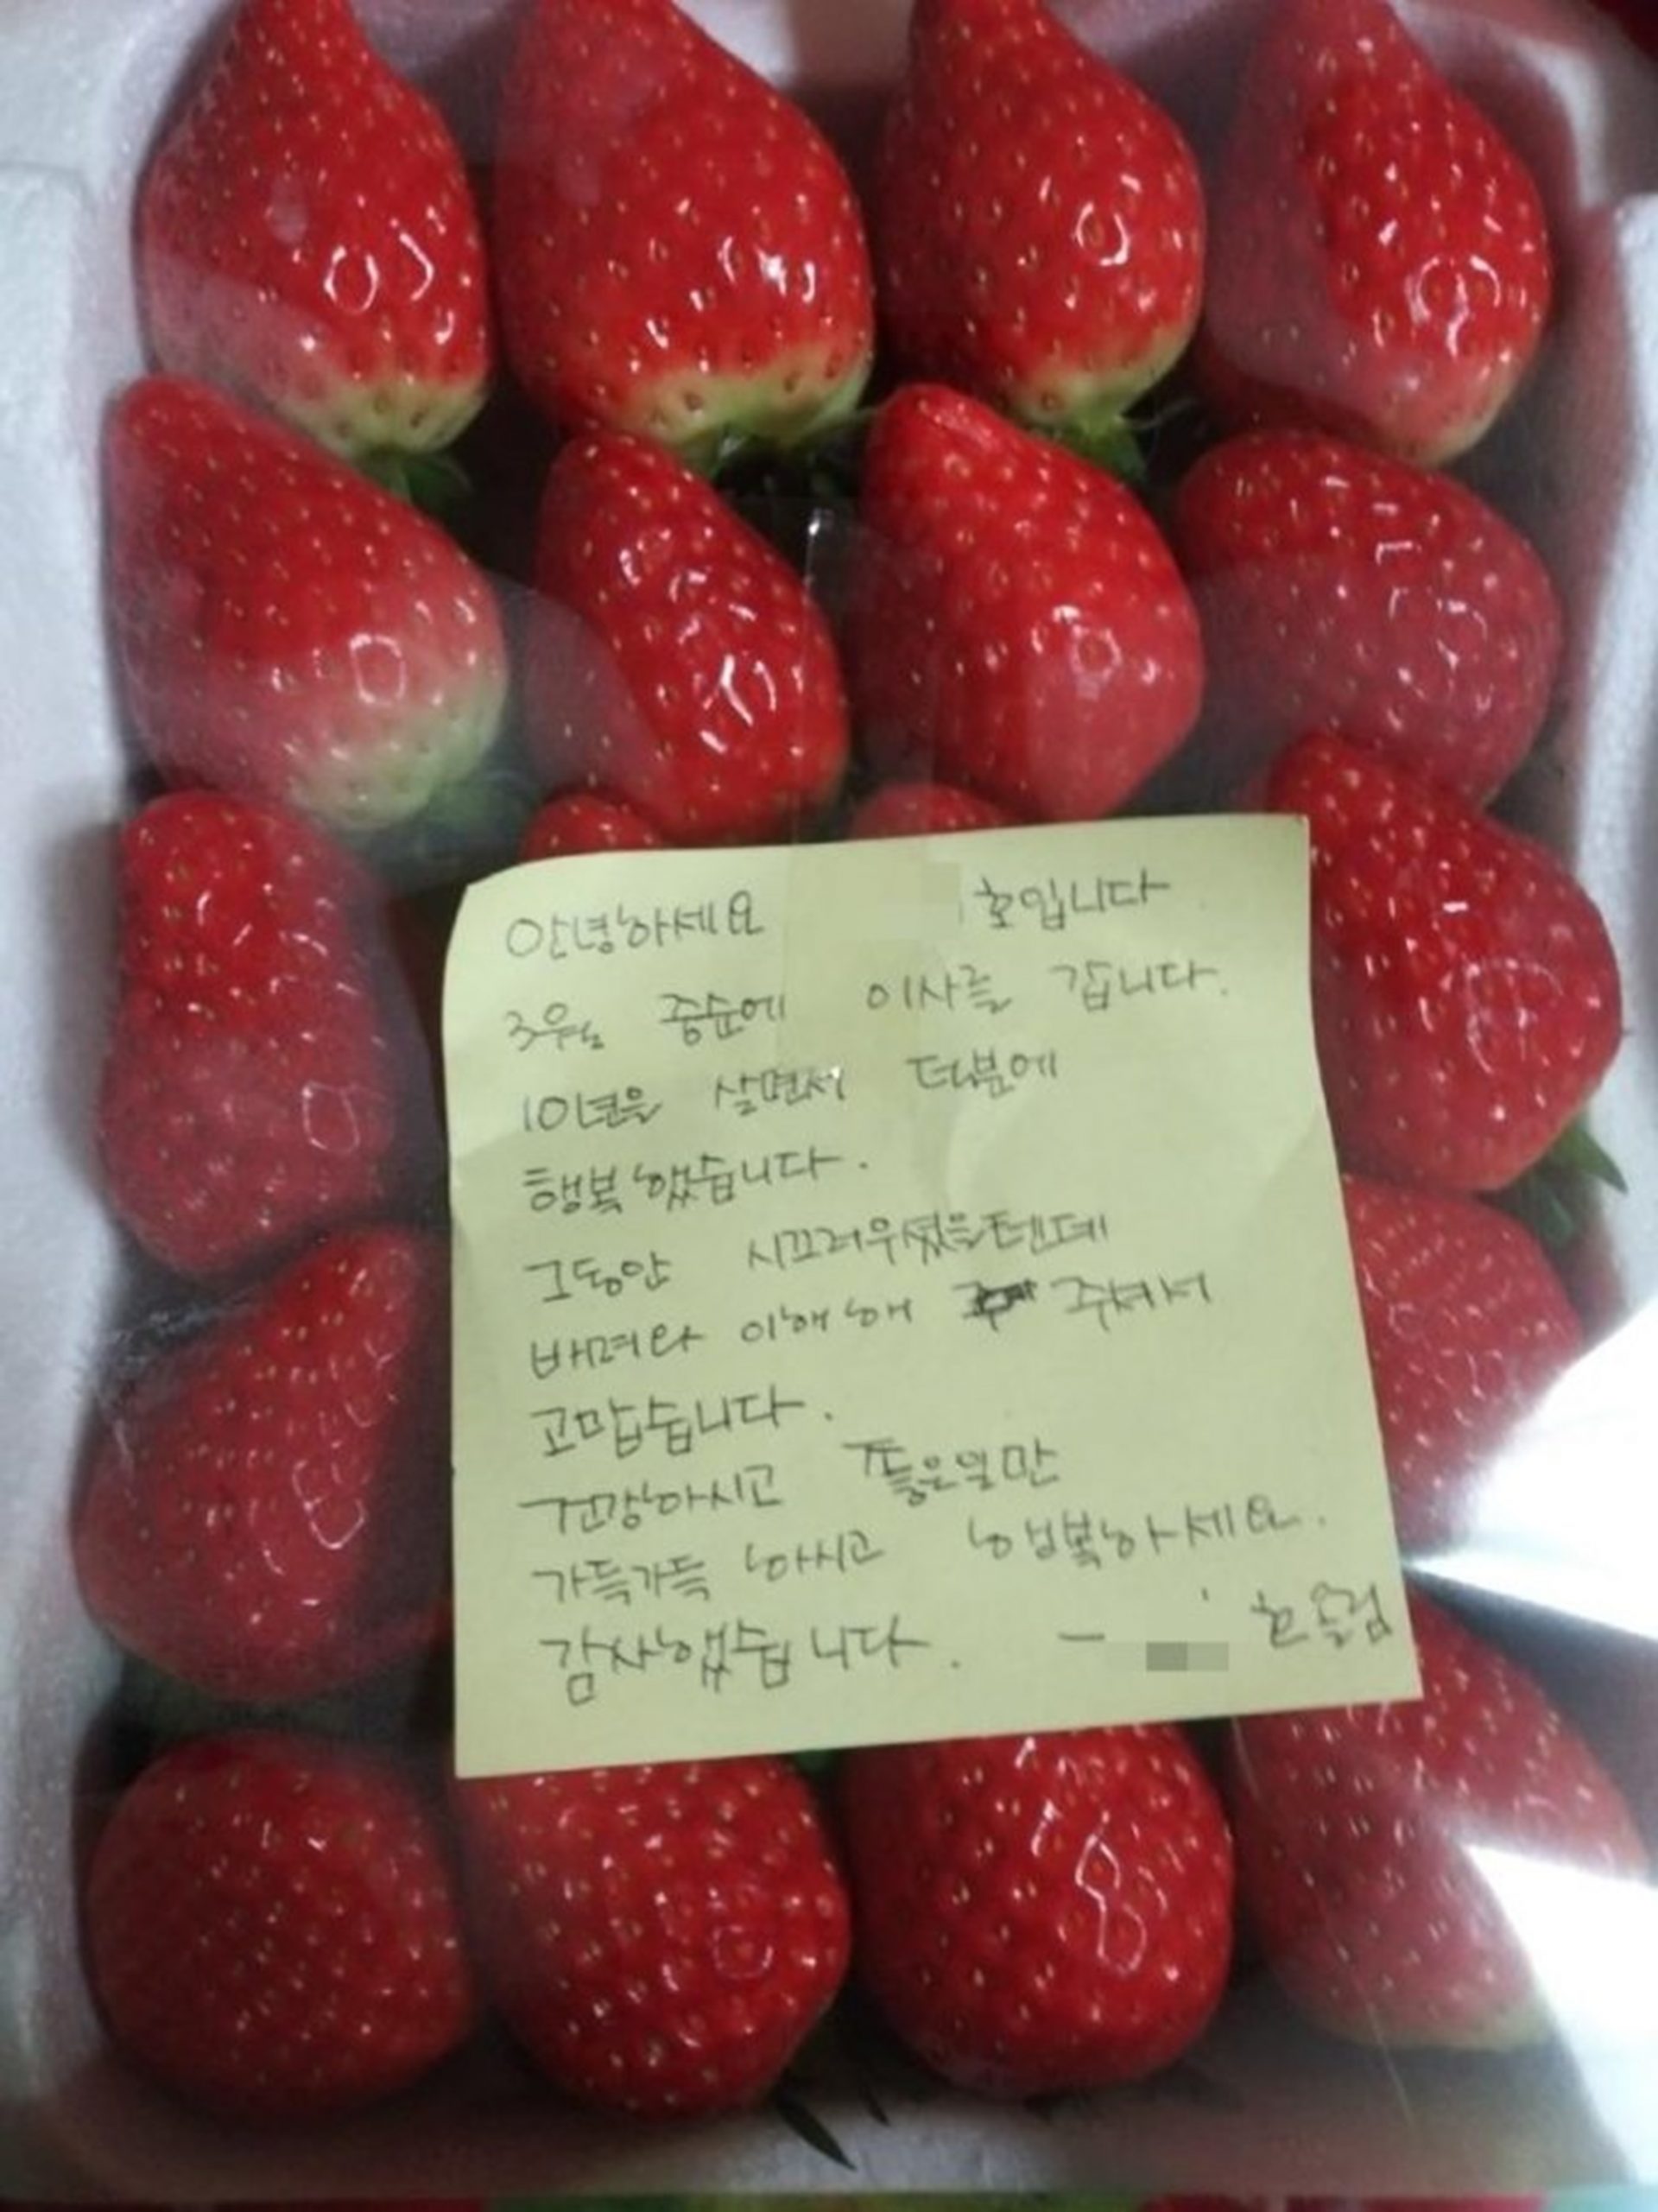 안녕하세요 호입니다
3월 중순에 이사를 갑니다.
10년을 살면서 덕분에
행복했습니다.
그동안 시끄러우셨을텐데
배려와 이해해 주셔서
고맙습니다.
건강하시고 좋은일만
가득가득 하시고 행복하세요.
감사했습니다. - 호 올림